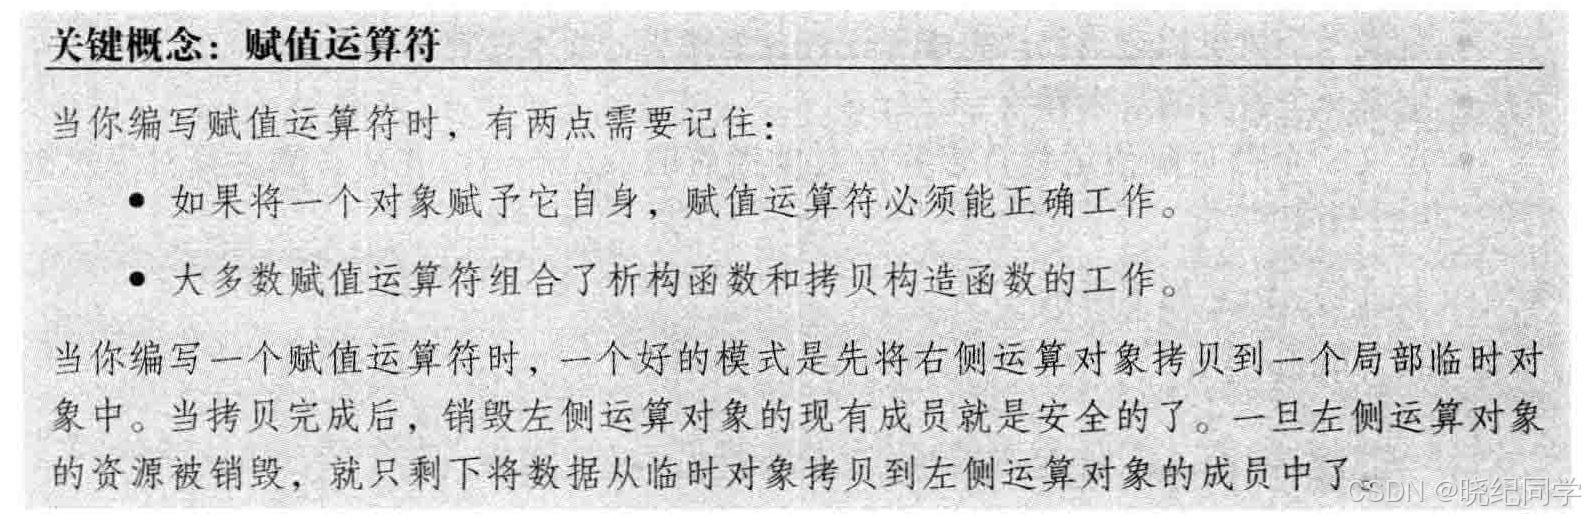 关键概念：赋值运算符
当你编写赋值运算符时，有两点需要记住：
• 如果将一个对象赋予它自身，赋值运算符必须能正确工作。
• 大多数赋值运算符组合了析构函数和拷贝构造函数的工作。
当你编写一个赋值运算符时，一个好的模式是先将右侧运算对象拷贝到一个局部临时对
象中。当拷贝完成后，销毁左侧运算对象的现有成员就是安全的了。一旦左侧运算对象
的资源被销毁，就只剩下将数据从临时对象拷贝到左侧运算对象的成员中了。
CSDN @晓纪同学